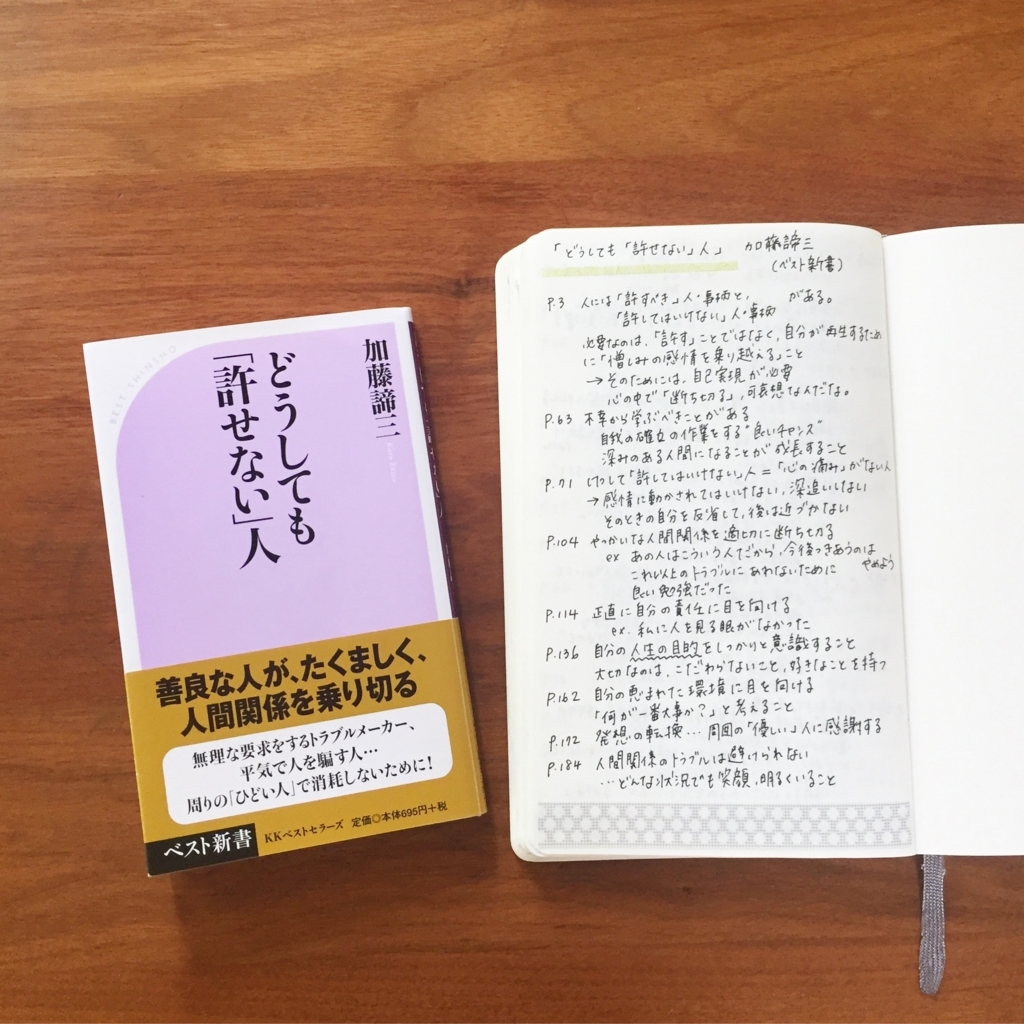 BEST SHINSHO
加藤諦三
どうしても
「許せない」人
善良な人が、たくましく、
人間関係を乗り切る
無理な要求をするトラブルメーカー、
平気で人を騙す人…
周りの「ひどい人」で消耗しないために!
ベスト新書 KKベストセラーズ 定価◎本体695円+税
「どうしても「許せない」人」 加藤諦三
(ベスト新書)
P.3 人には「許すべき」人・事柄と、 がある。
「許してはいけない」人・事柄
必要なのは、「許す」ことではなく、自分が再生するため
に「憎しみの感情を乗り越える」こと
→そのためには、自己実現が必要
心の中で「断ち切る」、可哀想な人だな。
P.63 不幸から学ぶべきことがある
自我の確立の作業をする"良いチャンス"
深みのある人間になることが成長すること
P.71 けっして「許してはいけない」人=「心の痛み」がない人
→感情に動かされてはいけない、深追いしない
そのときの自分を反省して、後は近づかない
P.104 やっかいな人間関係を適切に断ち切る
ex あの人はこういう人だから、今後つきあうのは
やめよう
これ以上のトラブルにあわないために
良い勉強だった
P.114 正直に自分の責任に目を向ける
ex. 私に人を見る眼がなかった
P.136 自分の人生の目的をしっかりと意識すること
大切なのは、こだわらないこと、好きなことを持つ
P.162 自分の恵まれた環境に目を向ける
「何が一番大事か?」と考えること
P.172 発想の転換…周囲の「優しい」人に感謝する
P.184 人間関係のトラブルは避けられない
…どんな状況でも笑顔、明るくいること